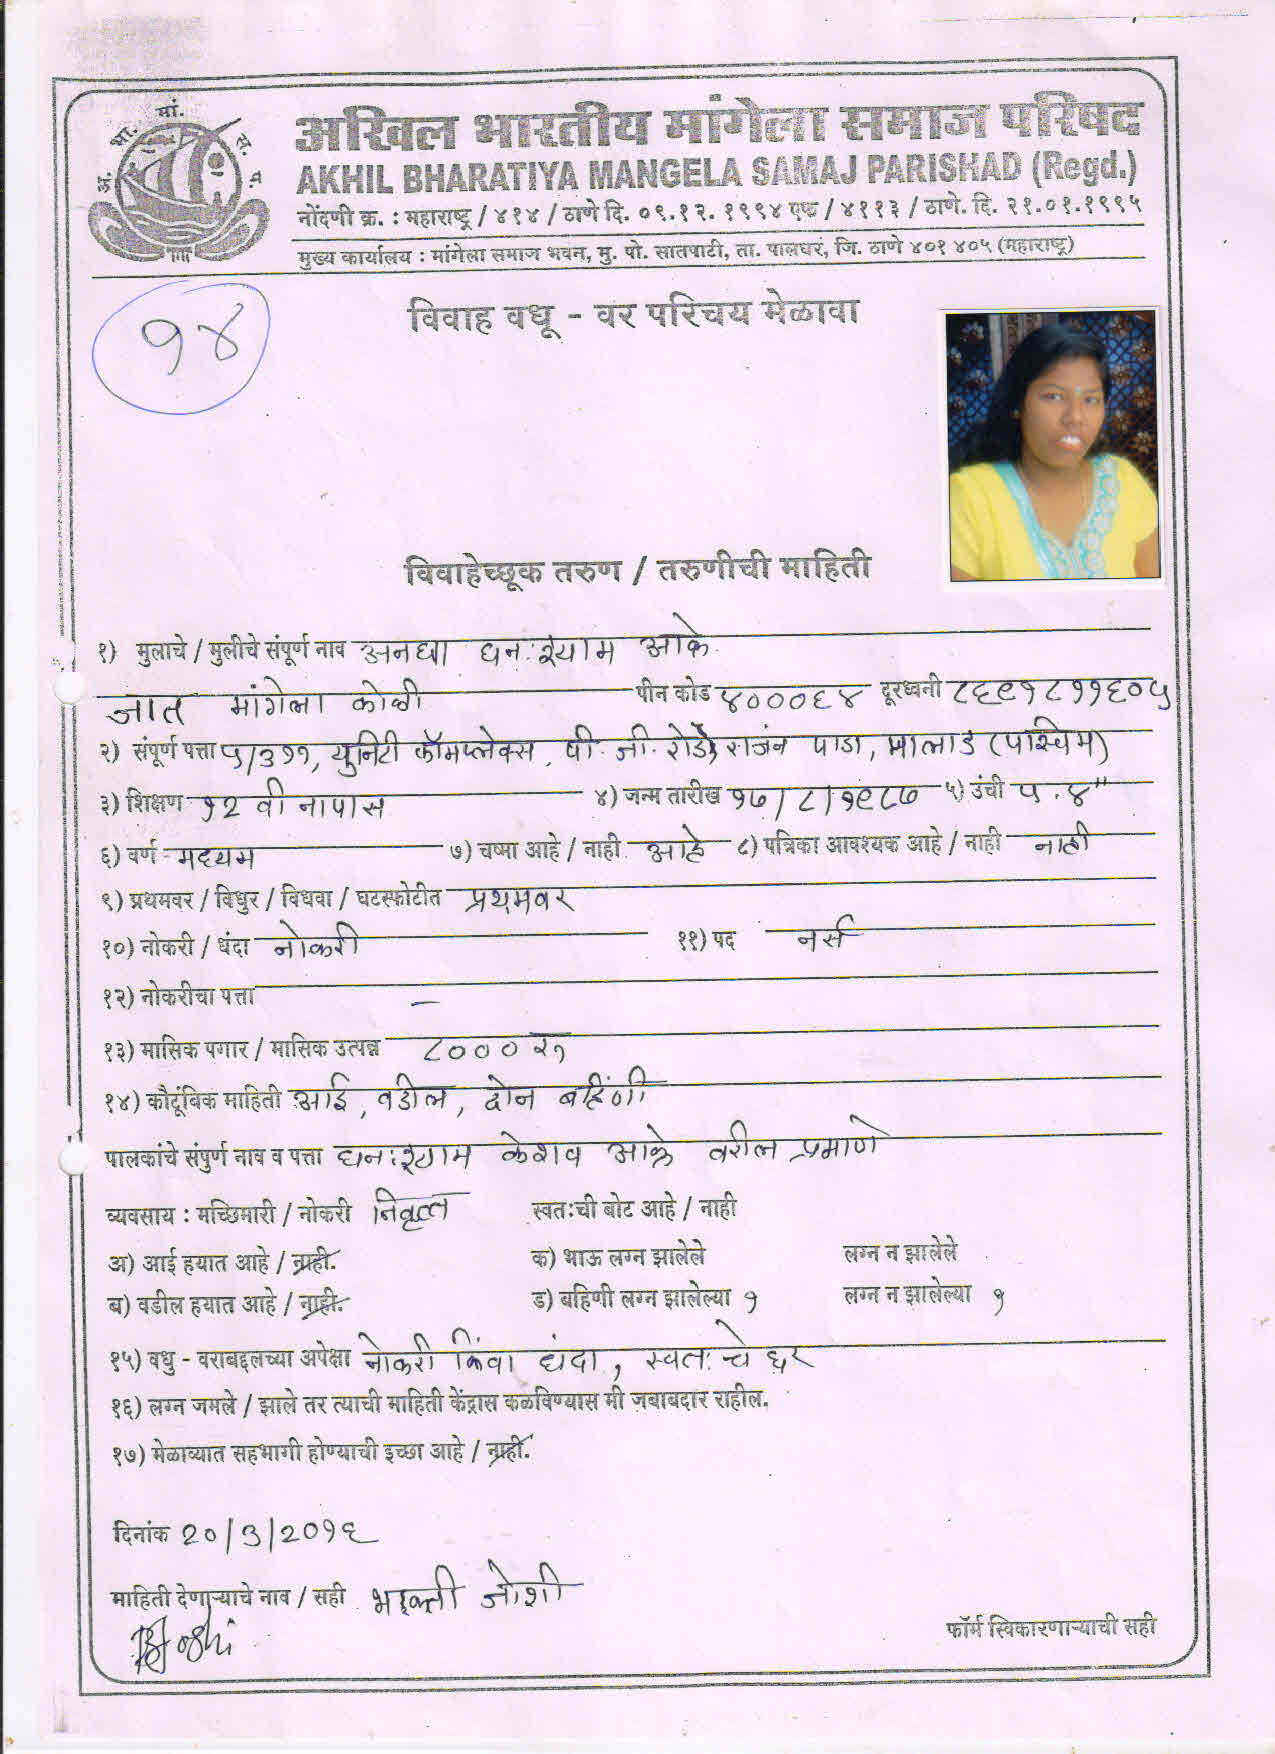 अ. भा. मां. स. प.
अखिल भारतीय मांगेला समाज परिषद
AKHIL BHARATIYA MANGELA SAMAJ PARISHAD (Regd.)
नोंदणी क्र. : महाराष्ट्र / ४१४ / ठाणे दि. ०९.१२.१९९४ एफ / ४११३ / ठाणे. दि. २१.०१.१९९५
मुख्य कार्यालय : मांगेला समाज भवन, मु. पो. सातपाटी, ता. पालघर, जि. ठाणे ४०१ ४०५ (महाराष्ट्र)
१४
विवाह वधू - वर परिचय मेळावा
विवाहेच्छूक तरुण / तरुणीची माहिती
१) मुलाचे / मुलीचे संपूर्ण नाव अनघा घनःश्याम आक्रे.
जात मांगेला कोळी पीन कोड ४०००६४ दूरध्वनी ८६९१८११६०५
२) संपूर्ण पत्ता ५/३११, युनिटी कॉमप्लेक्स, पी. जी. रोड, राजंन पाडा, मालाड (पश्चिम)
३) शिक्षण १२ वी नापास ४) जन्म तारीख १७/८/१९८७ ५) उंची ५.४"
६) वर्ण मध्यम ७) चष्मा आहे / नाही आहे ८) पत्रिका आवश्यक आहे / नाही नाही
९) प्रथमवर / विधुर / विधवा / घटस्फोटीत प्रथमवर
१०) नोकरी / धंदा नोकरी ११) पद नर्स
१२) नोकरीचा पत्ता –
१३) मासिक पगार / मासिक उत्पन्न ८००० रु
१४) कौटूंबिक माहिती आई, वडील, दोन बहिणी
पालकांचे संपुर्ण नाव व पत्ता घनःश्याम केशव आक्रे वरील प्रमाणे
व्यवसाय : मच्छिमारी / नोकरी निवृत्त स्वतःची बोट आहे / नाही
अ) आई हयात आहे / नाही. क) भाऊ लग्न झालेले लग्न न झालेले
ब) वडील हयात आहे / नाही. ड) बहिणी लग्न झालेल्या १ लग्न न झालेल्या १
१५) वधु - वराबद्दलच्या अपेक्षा नोकरी किंवा धंदा, स्वतःचे घर
१६) लग्न जमले / झाले तर त्याची माहिती केंद्रास कळविण्यास मी जबाबदार राहील.
१७) मेळाव्यात सहभागी होण्याची इच्छा आहे / नाही.
दिनांक २०/३/२०१६
माहिती देणाऱ्याचे नाव / सही भक्ती जोशी
फॉर्म स्विकारणाऱ्याची सही